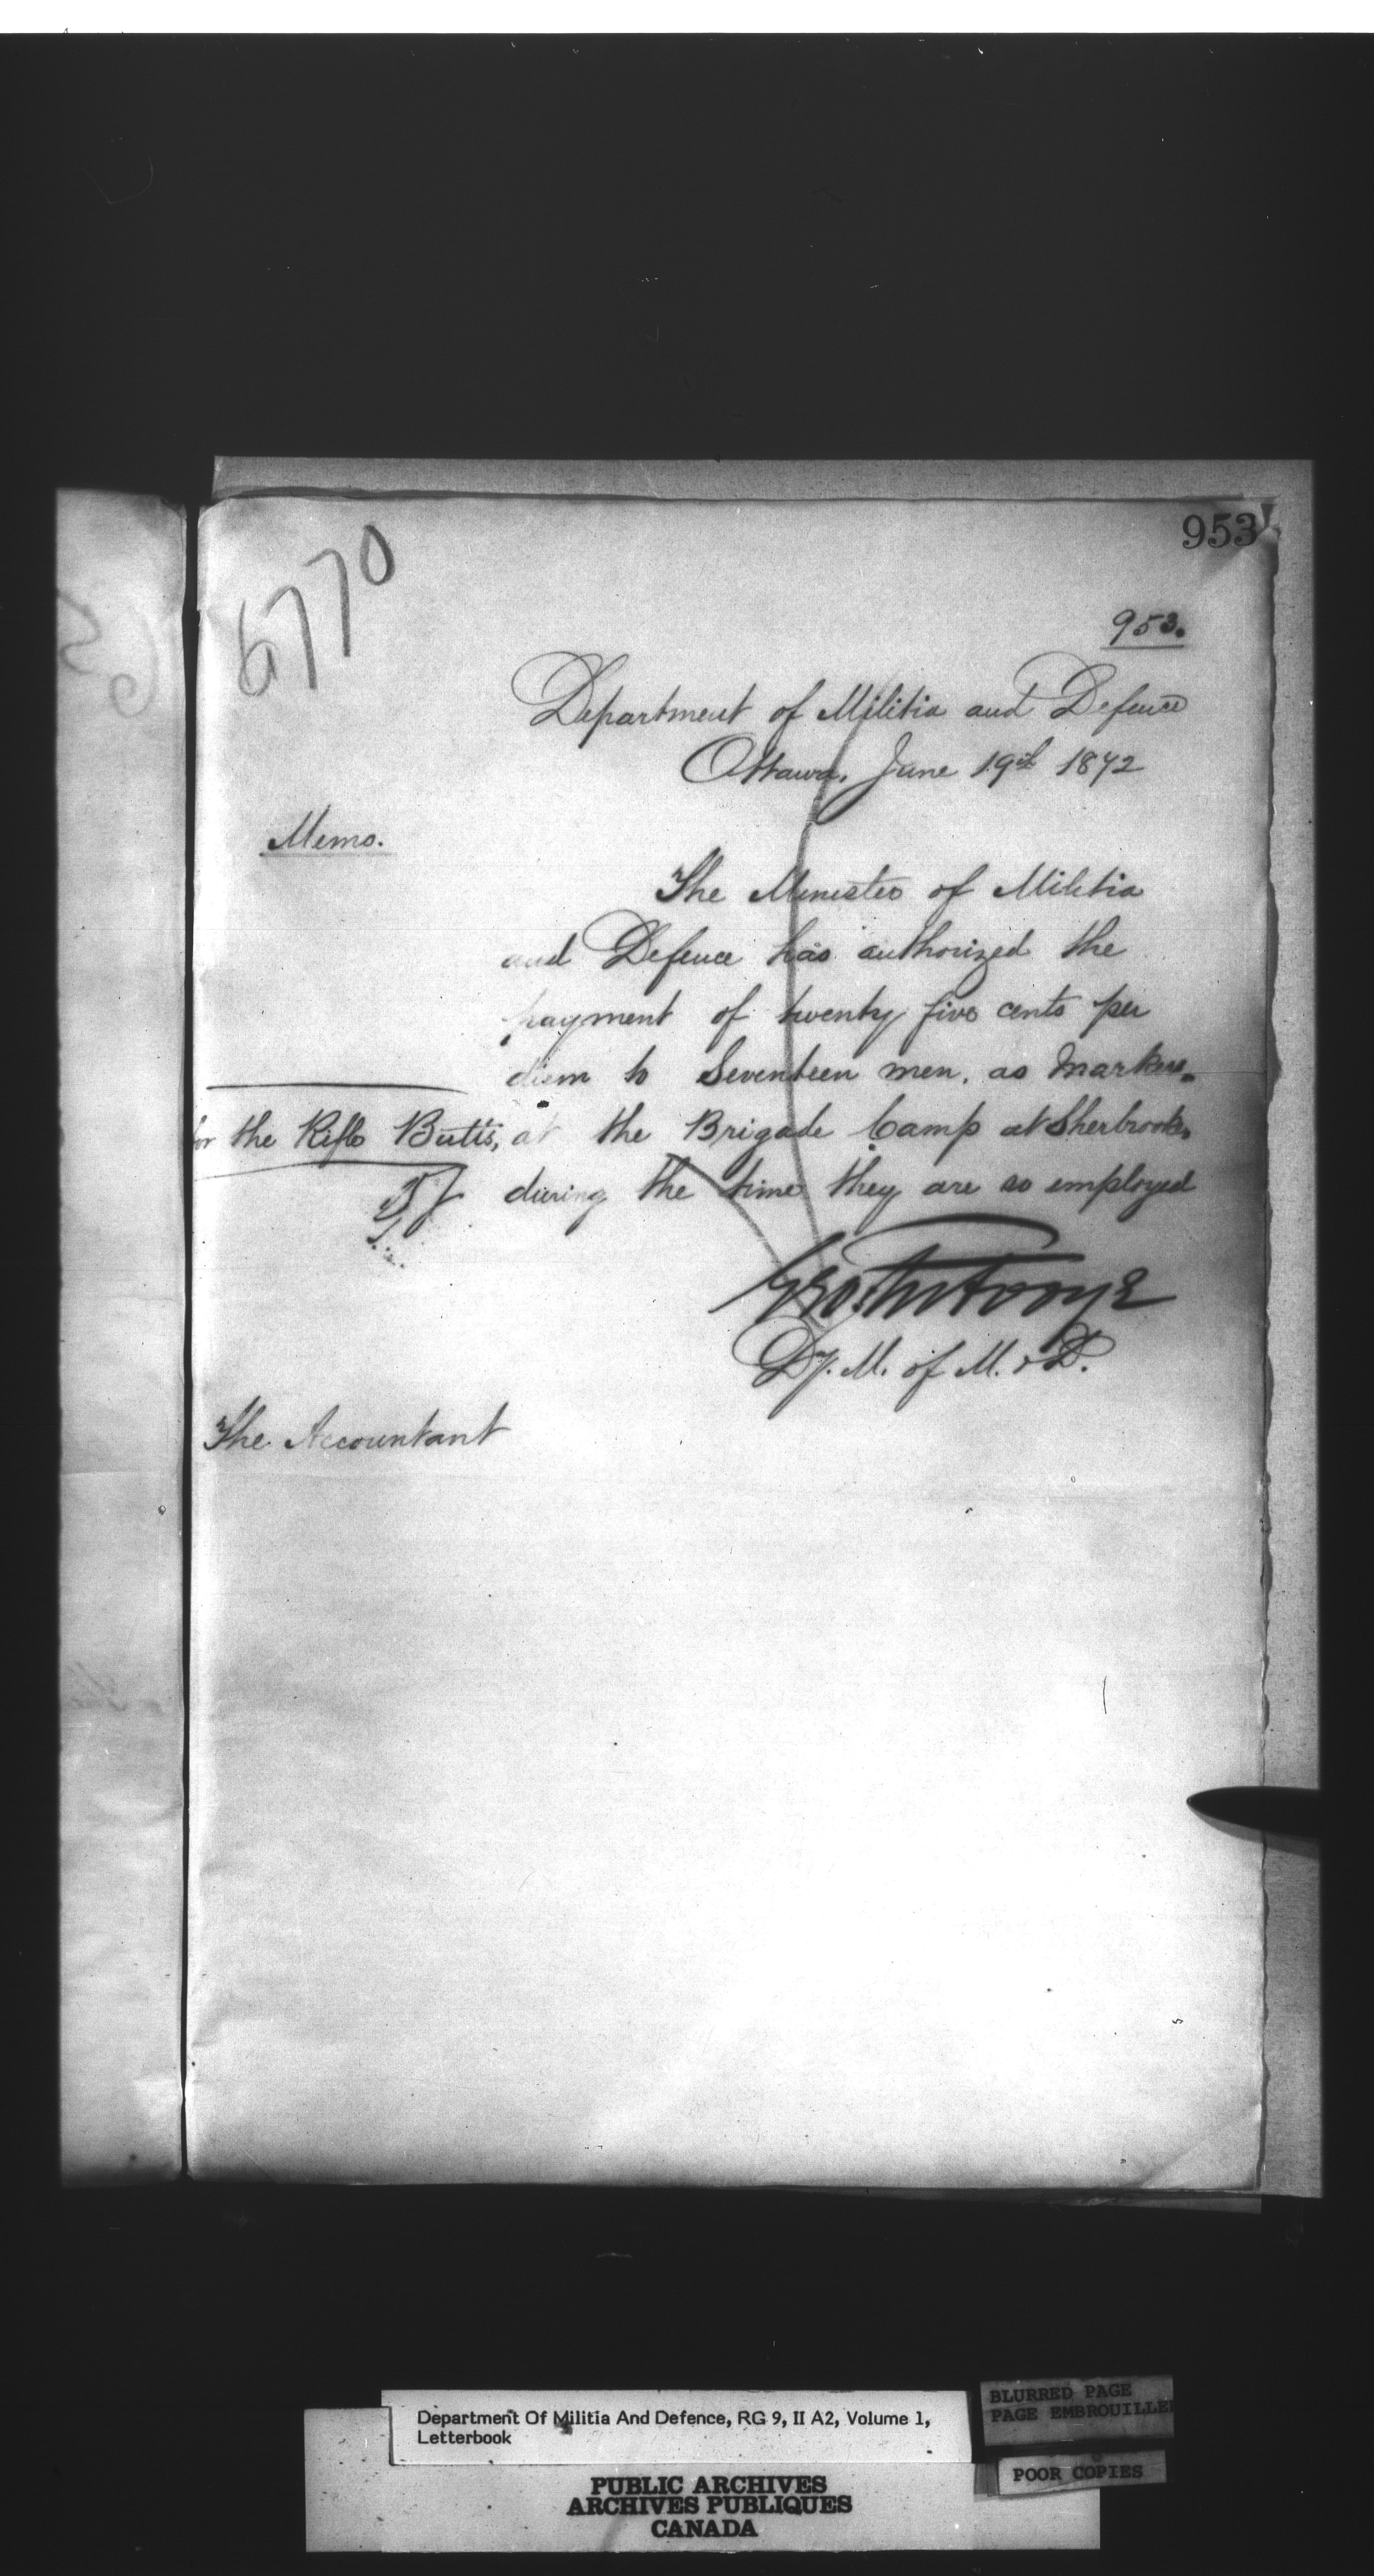 953
6770
953.
Department of Militia and Defence
Ottawa, June 19th 1872
Memo.
The Minister of Militia
and Defence has authorized the
payment of twenty five cents per
diem to Seventeen men, as Markers
for the Rifle Butts, at the Brigade Camp at Sherbrooke,
during the time they are so employed
Dy. M. of M. & D.
The Accountant
Department Of Militia And Defence, RG 9, II A2, Volume 1,
Letterbook
BLURRED PAGE
PAGE EMBROUILLEE
POOR COPIES
PUBLIC ARCHIVES
ARCHIVES PUBLIQUES
CANADA